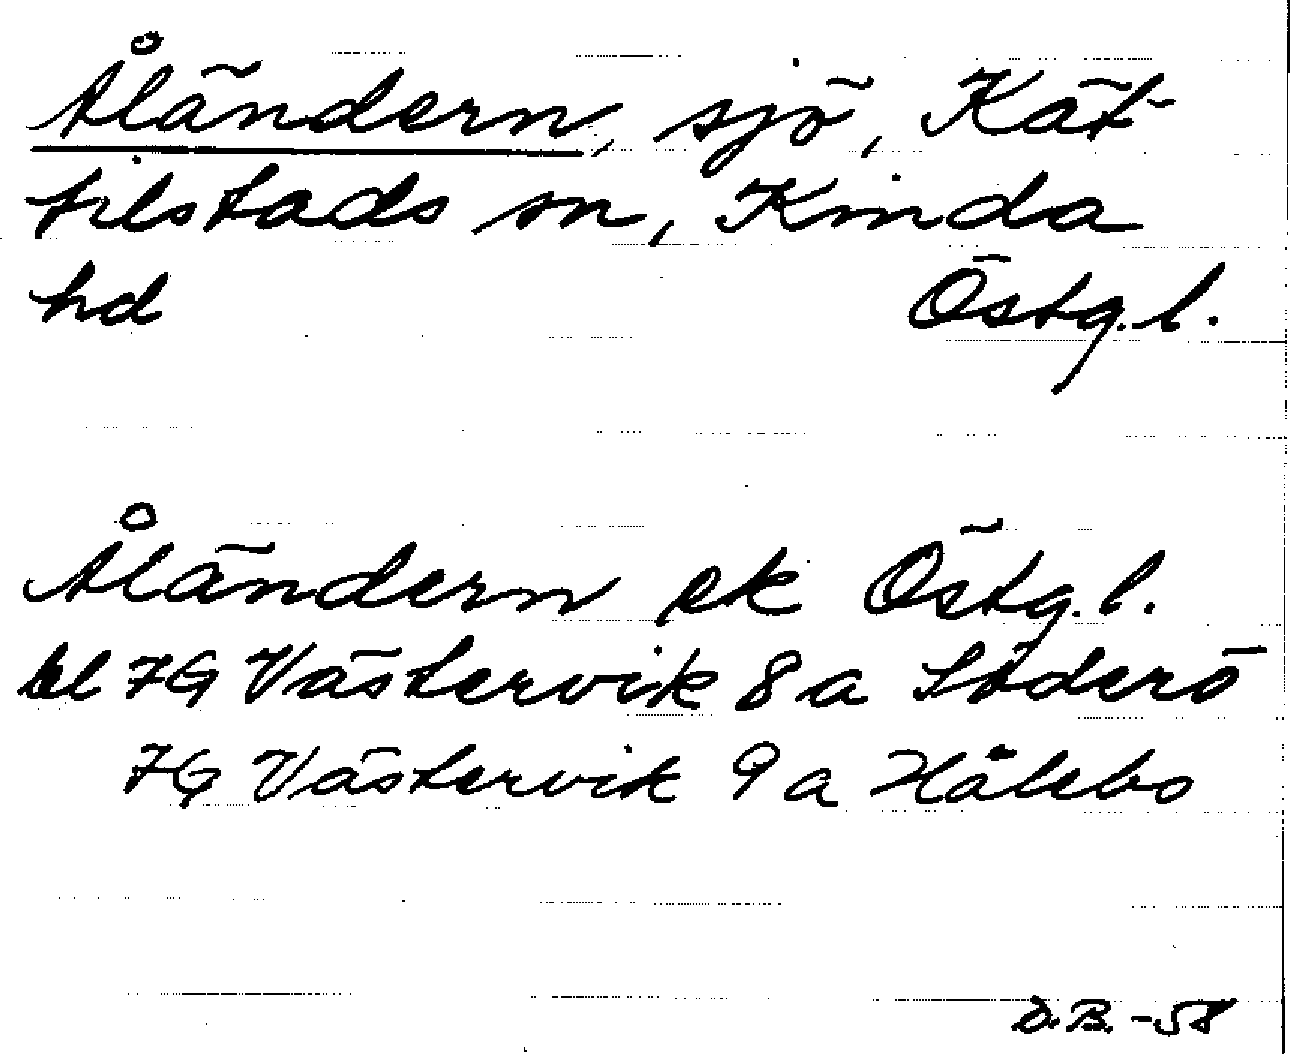 Åländern, sjö, Kät-
tilstads sn, Kinda
hd Östg. l.
Åländern ek Östg. l.
bl 7G Västervik 8a Söderö
7G Västervik 9a Hålebo
D.B. -58